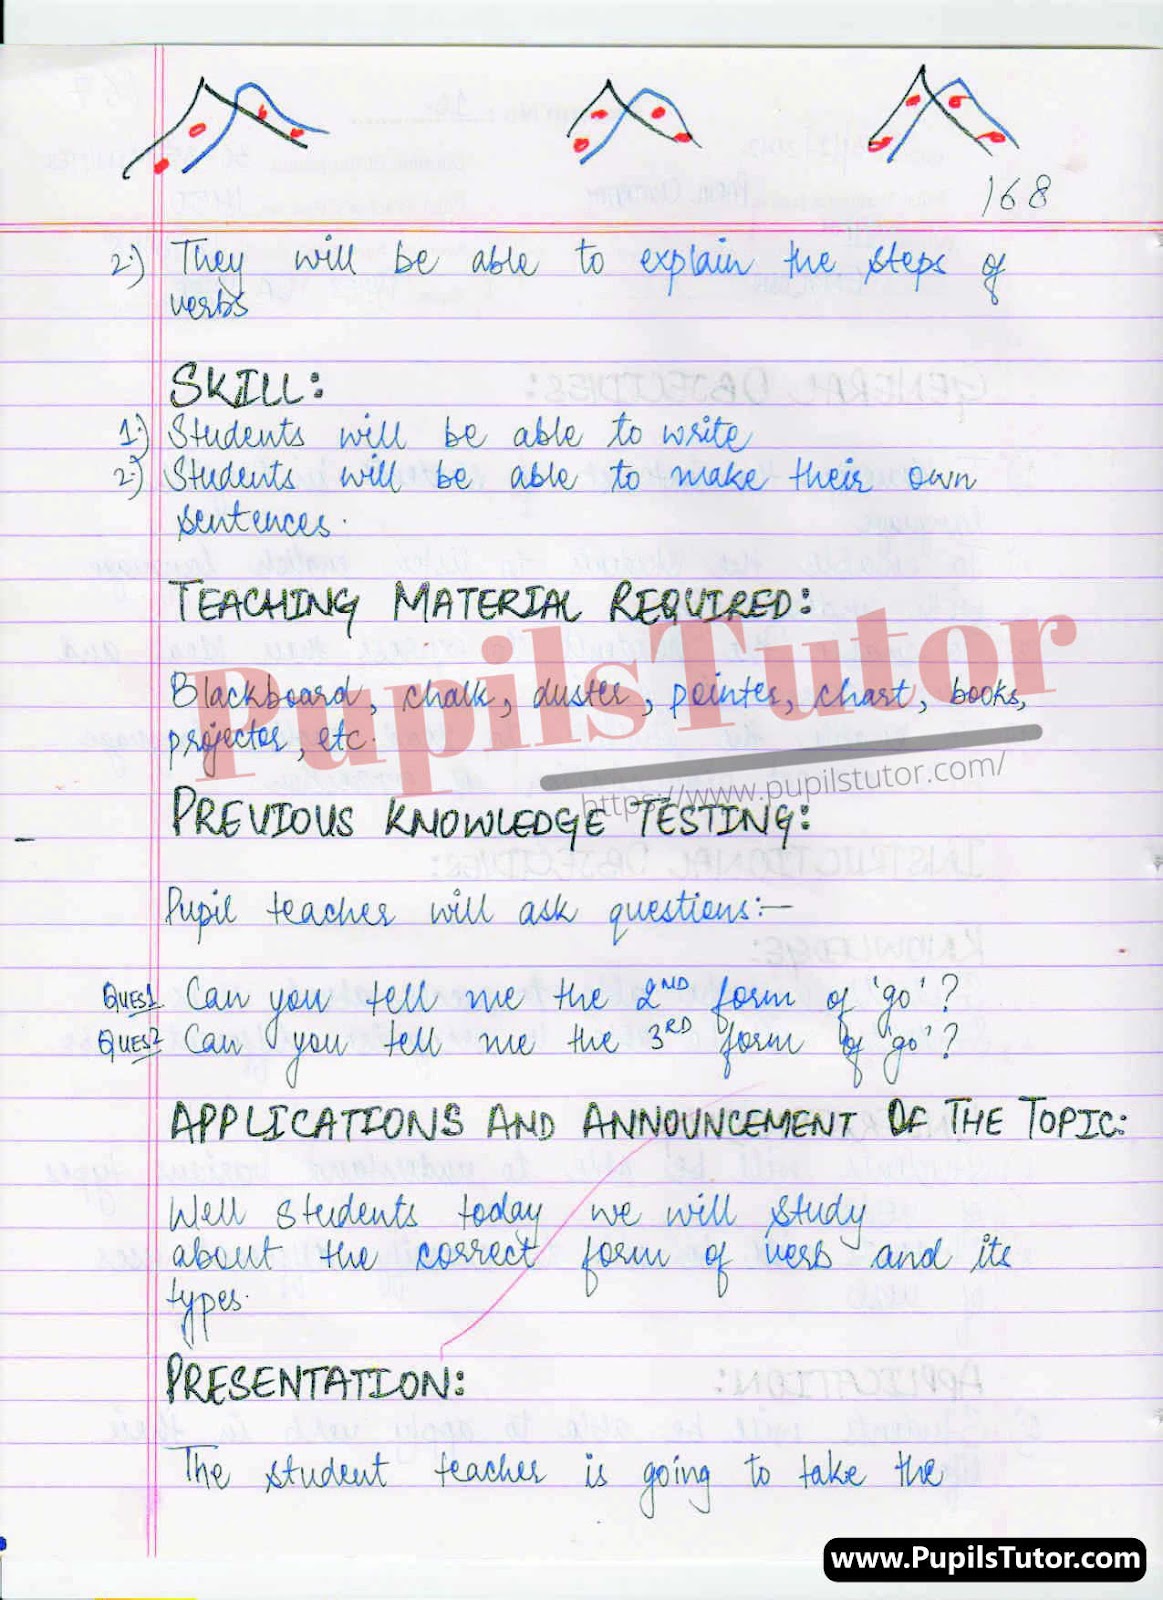 168
2:) They will be able to explain the steps of
verbs
SKILL:
1:) Students will be able to write
2:) Students will be able to make their own
sentences.
TEACHING MATERIAL REQUIRED:
Blackboard, chalk, duster, pointer, chart, books,
projector, etc.
PupilsTutor
https://www.pupilstutor.com/
PREVIOUS KNOWLEDGE TESTING:
Pupil teacher will ask questions:—
QUES1 Can you tell me the 2ND form of 'go'?
QUES2 Can you tell me the 3RD form of 'go'?
APPLICATIONS AND ANNOUNCEMENT OF THE TOPIC:
Well students today we will study
about the correct form of verb and its
types.
PRESENTATION:
The student teacher is going to take the
www.PupilsTutor.com